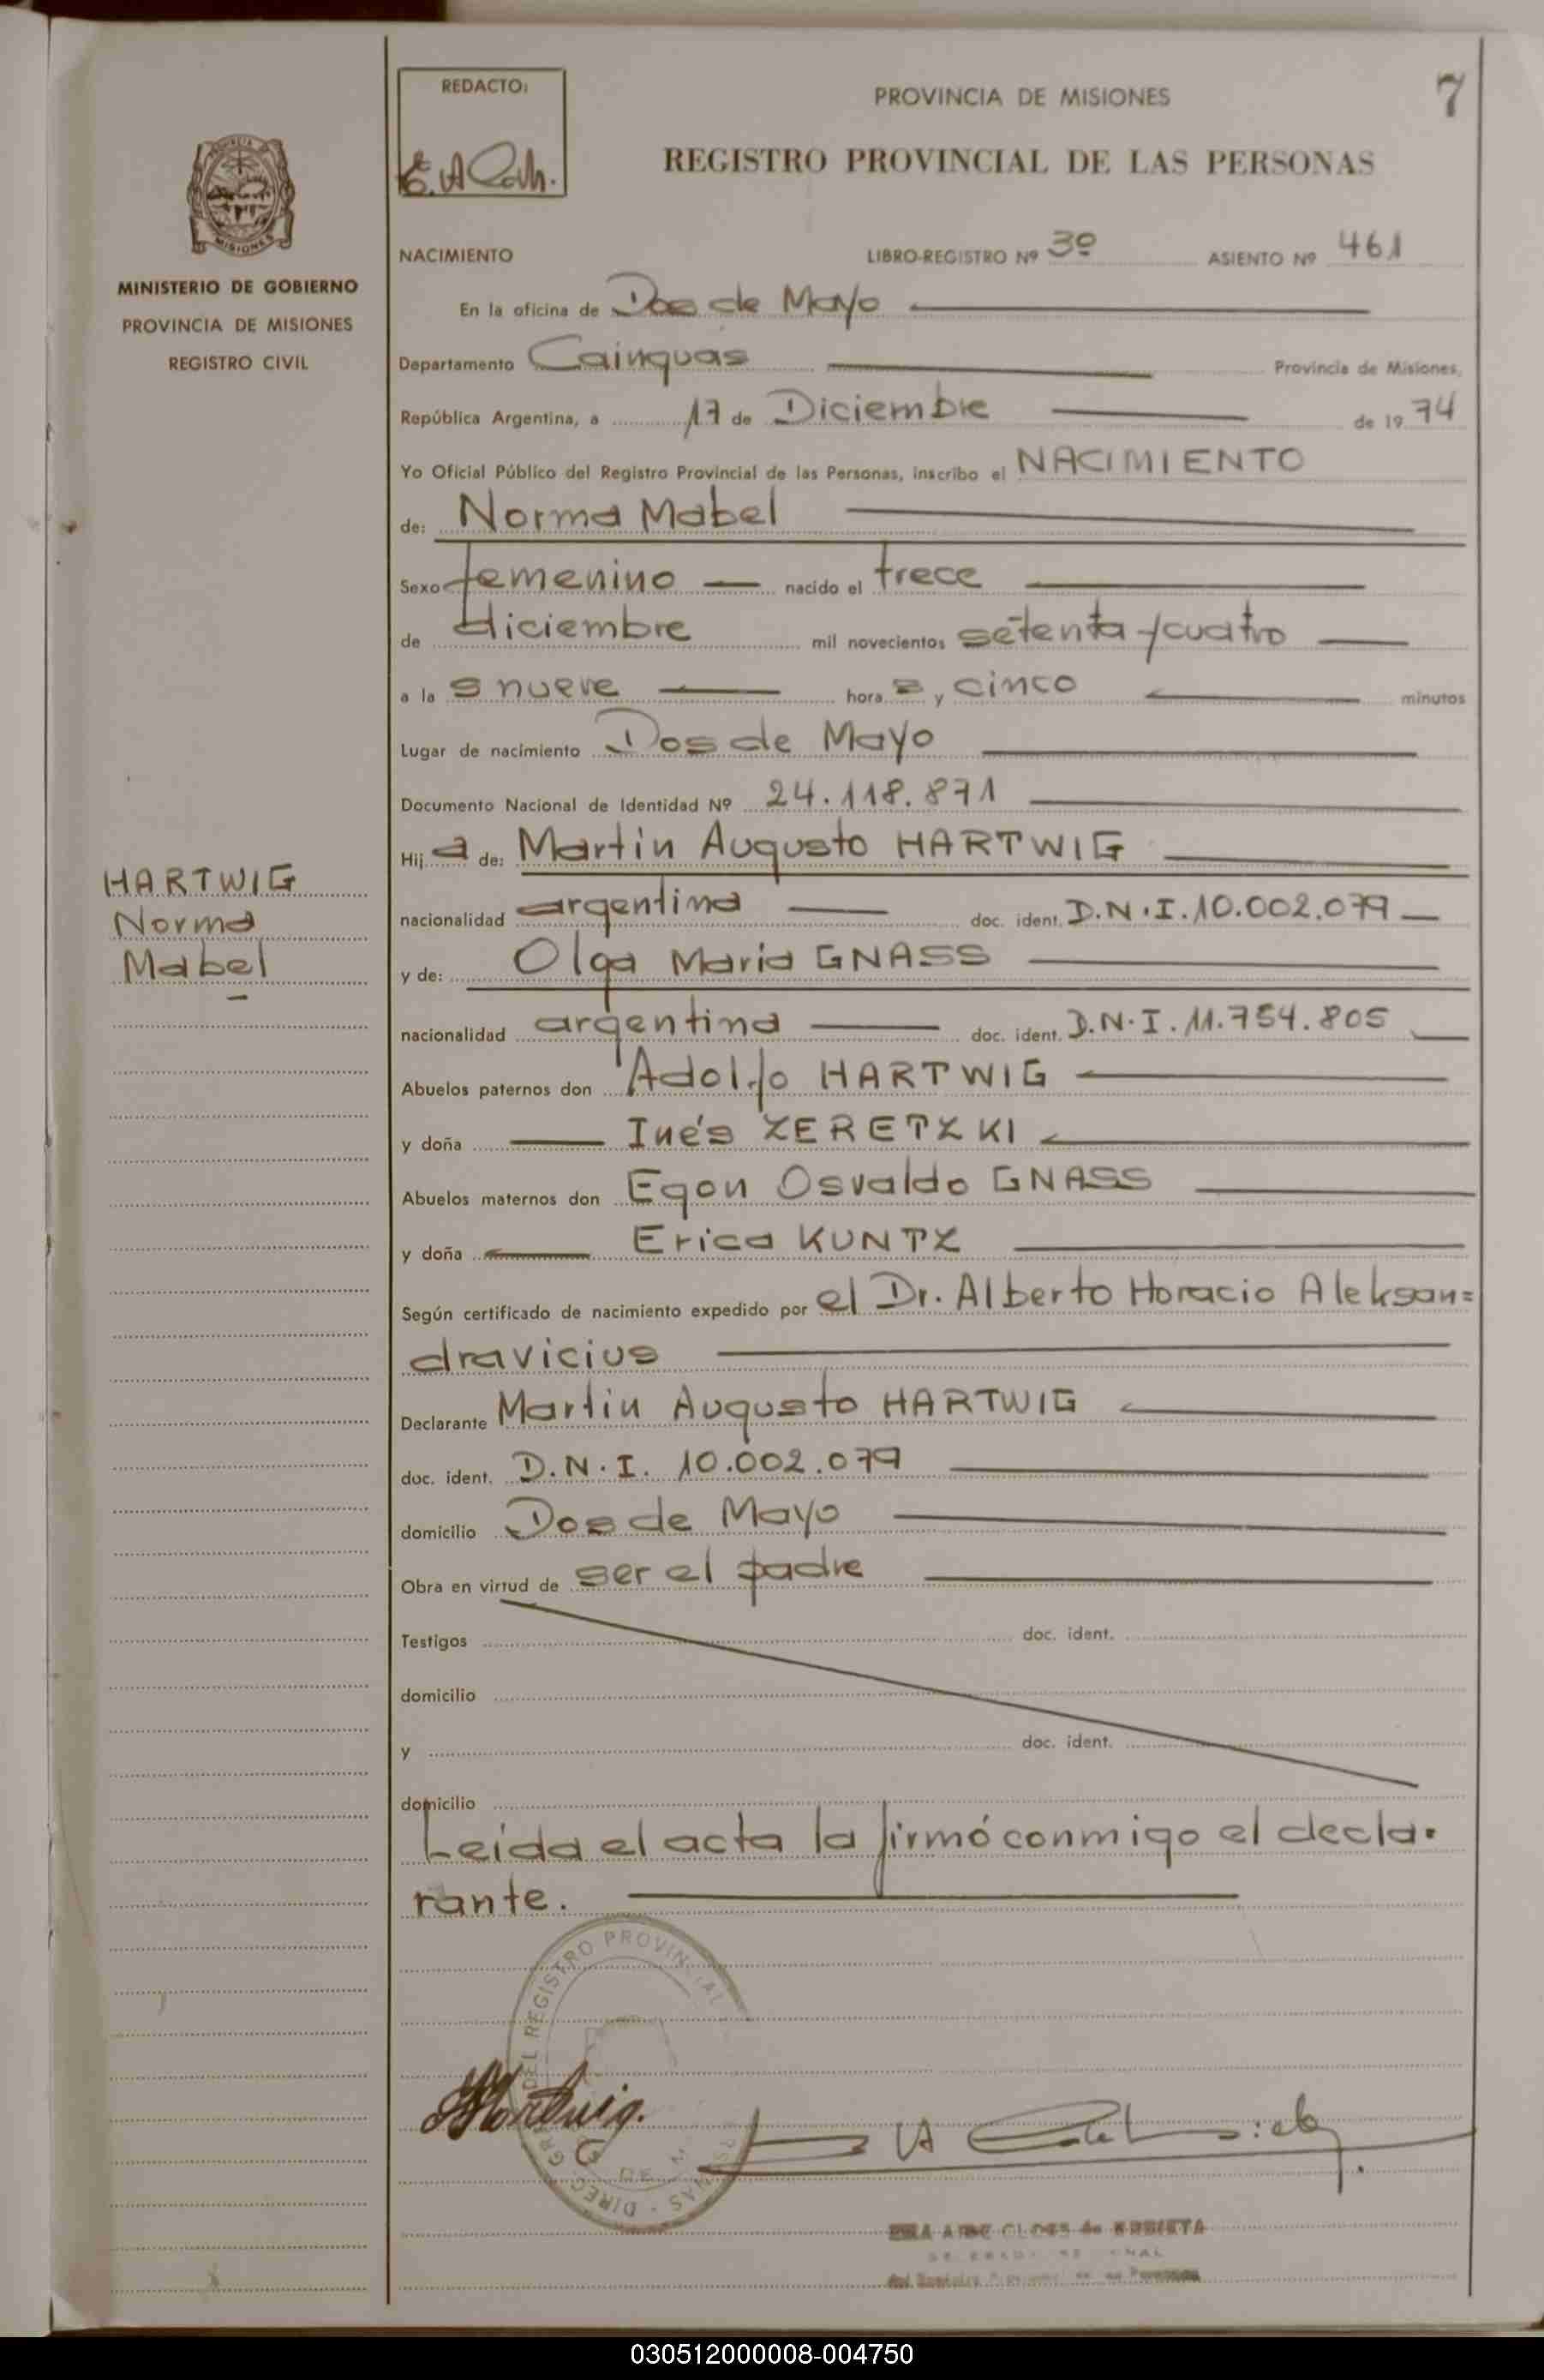 REDACTO:
PROVINCIA DE MISIONES
7
REGISTRO PROVINCIAL DE LAS PERSONAS
MISIONES
MINISTERIO DE GOBIERNO
PROVINCIA DE MISIONES
REGISTRO CIVIL
NACIMIENTO LIBRO-REGISTRO Nº 3º ASIENTO Nº 461
En la oficina de Dos de Mayo
Departamento Cainguas Provincia de Misiones,
República Argentina, a 17 de Diciembre de 19 74
Yo Oficial Público del Registro Provincial de las Personas, inscribo el NACIMIENTO
de: Norma Mabel
Sexo femenino nacido el trece
de diciembre mil novecientos setenta y cuatro
a la s nueve hora s y cinco minutos
Lugar de nacimiento Dos de Mayo
Documento Nacional de Identidad Nº 24.118.871
Hij a de: Martin Augusto HARTWIG
HARTWIG
Norma
Mabel
nacionalidad argentina doc. ident. D.N.I. 10.002.079
y de: Olga Maria GNASS
nacionalidad argentina doc. ident. D.N.I. 11.754.805
Abuelos paternos don Adolfo HARTWIG
y doña Inés ZERETZKI
Abuelos maternos don Egon Osvaldo GNASS
y doña Erica KUNTZ
Según certificado de nacimiento expedido por el Dr. Alberto Horacio Aleksan=
dravicius
Declarante Martin Augusto HARTWIG
doc. ident. D.N.I. 10.002.079
domicilio Dos de Mayo
Obra en virtud de ser el padre
Testigos doc. ident.
domicilio
y doc. ident.
domicilio
Leida el acta la firmó conmigo el decla-
rante.
DEL REGISTRO PROVINCIAL
Hartwig.
030512000008-004750